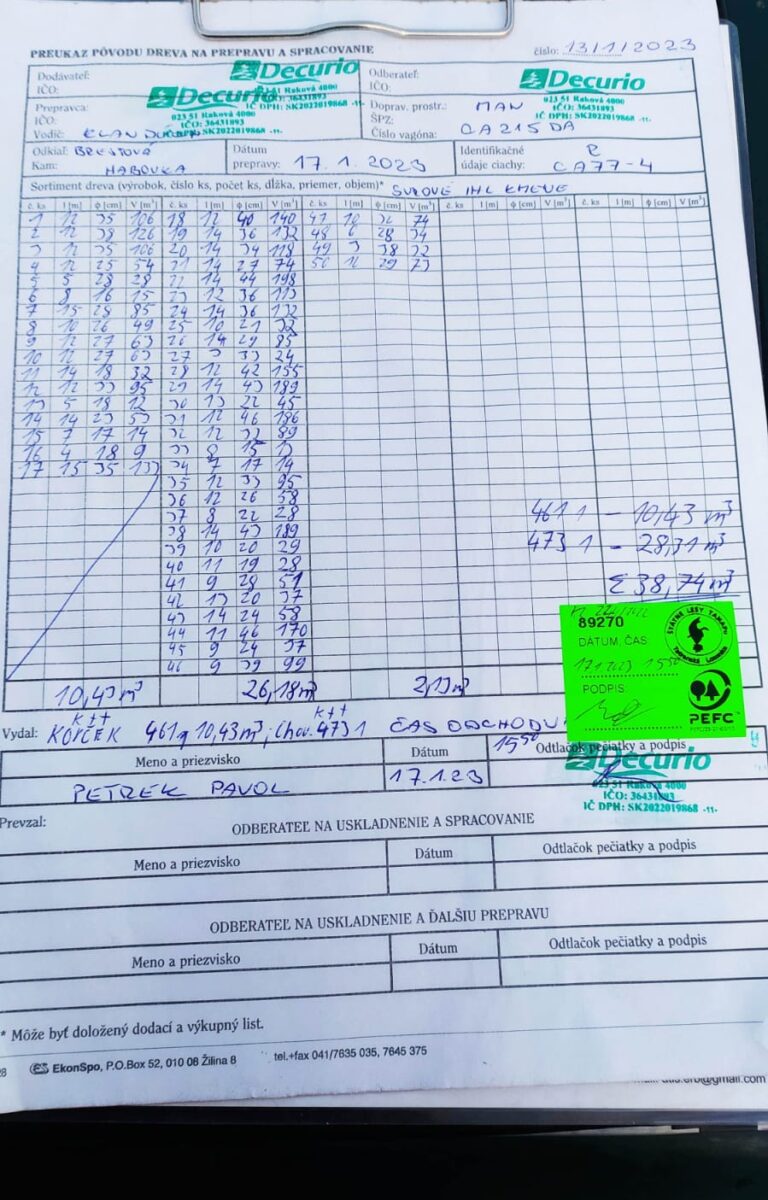 PREUKAZ PÔVODU DREVA NA PREPRAVU A SPRACOVANIE číslo: 13/1/2023
Dodávateľ: Decurio Odberateľ: Decurio
IČO: IČO:
Prepravca: Decurio 023 51 Raková 4000 Doprav. prostr.: MAN 023 51 Raková 4000
IČO: IČO: 36431893 ŠPZ: IČO: 36431893
Vodič: IČ DPH: SK2022019868 -11- Číslo vagóna: CA215DA IČ DPH: SK2022019868 -11-
Odkiaľ: BRESTOVÁ Dátum Identifikačné R
Kam: HABOVKA prepravy: 17.1.2023 údaje ciachy: CA77-4
Sortiment dreva (výrobok, číslo ks, počet ks, dĺžka, priemer, objem)* SUROVÉ IHL KMENE
č. ks l [m] φ [cm] V [m³] č. ks l [m] φ [cm] V [m³] č. ks l [m] φ [cm] V [m³] č. ks l [m] φ [cm] V [m³] č. ks l [m] φ [cm] V [m³]
1 12 35 106 18 12 40 140 47 10 32 74
2 12 38 126 19 14 36 132 48 6 28 34
3 12 35 106 20 14 34 118 49 3 38 32
4 12 25 54 21 14 27 74 50 12 29 73
5 5 28 28 22 14 44 198
6 8 16 15 23 12 36 113
7 15 28 85 24 14 36 132
8 10 26 49 25 10 21 32
9 12 27 63 26 14 29 85
10 12 27 63 27 3 33 24
11 14 18 32 28 12 42 155
12 12 33 95 29 14 43 189
13 5 18 12 30 13 22 45
14 14 23 53 31 12 46 186
15 7 17 14 32 12 33 89
16 4 18 9 33 8 15 13
17 15 35 133 34 7 17 14
35 12 33 95
36 12 26 58
37 8 22 28
38 14 43 189
39 10 20 29
40 11 19 28
41 9 28 51
42 13 20 37
43 14 24 58
44 11 46 170
45 9 24 37
46 9 39 99
461 1 - 10,43 m³
473 1 - 28,31 m³
Σ 38,74 m³
89270
DÁTUM, ČAS:
17.1.2023 15 50
PODPIS:
ŠTÁTNE LESY TANAPU
TATRANSKÁ LOMNICA
PEFC
10,43 m³ 26,18 m³ 2,13 m³
Vydal: KOVČEK 461 10,43 m³; Chov. 473 1 ČAS ODCHODU 15 50
Meno a priezvisko Dátum Odtlačok pečiatky a podpis
PETREK PAVOL 17.1.23 Decurio
023 51 Raková 4000
IČO: 36431893
IČ DPH: SK2022019868 -11-
Prevzal: ODBERATEĽ NA USKLADNENIE A SPRACOVANIE
Meno a priezvisko Dátum Odtlačok pečiatky a podpis
ODBERATEĽ NA USKLADNENIE A ĎALŠIU PREPRAVU
Meno a priezvisko Dátum Odtlačok pečiatky a podpis
* Môže byť doložený dodací a výkupný list.
ES EkonSpo, P.O.Box 52, 010 08 Žilina 8 tel.+fax 041/7635 035, 7645 375